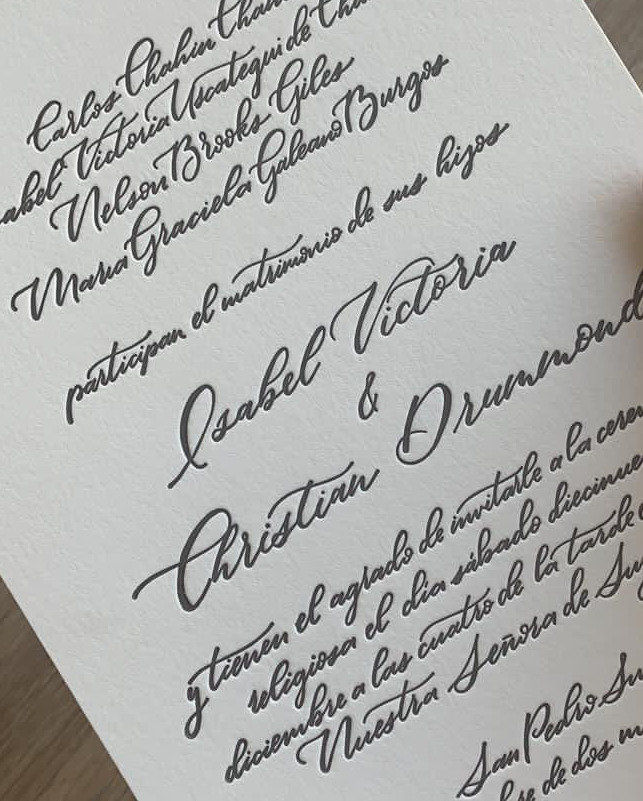 Carlos Chahin Chah
abel Victoria Uscategui de Cha
Nelson Brooks Giles
Maria Graciela Galeano Burgos
participan el matrimonio de sus hijos
Isabel Victoria
&
Christian Drummond
y tienen el agrado de invitarle a la cerem
religiosa el día sábado diecinue
diciembre a las cuatro de la tarde
Nuestra Señora de Suy
San Pedro Su
bre de dos m